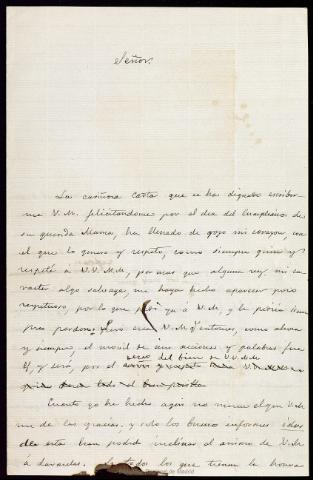 Señor.
La cariñosa carta que se ha dignado escribir-
me V.M. felicitandome por el dia del Cumpleaños de
su querida Mamá, ha llenado de gozo mi corazon, con
el que la quiero y respeto, como siempre quise y
respeté á V.V.M.M., por mas que alguna vez mi ca-
racter algo salvaje, me haya hecho aparecer poco
respetuoso, por lo que pedí ya á V.M. y le pediria siem-
pre perdon; pero crea V.M. q' entonces, como ahora
y siempre, el movil de mis acciones y palabras fue
el deseo del bien de V.V.M.M.
y será, por el
Cuanto yo he hecho aqui no merece el que V.M.
me dé las gracias, y solo los buenos informes
de esta han podido inclinar el animo de V.M.
á darmelas. todos los que tienen la honra
de Madrid